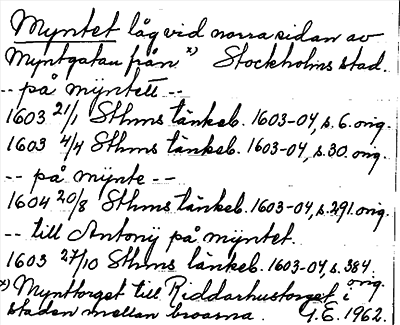 Myntet låg vid norra sidan av
Myntgatan från x) Stockholms stad.
-- på mÿntett --
1603 21/1 Sthms tänkeb. 1603-04, s. 6. orig.
1603 4/4 Sthms tänkeb. 1603-04, s. 30. orig.
-- på mÿnte --
1604 20/8 Sthms tänkeb. 1603-04, s. 291. orig.
-- till Antonÿ på mÿntet.
1603 27/10 Sthms tänkeb. 1603-04, s. 384. orig.
x) Mynttorget till Riddarhustorget i
staden mellan broarna. G.E. 1962.